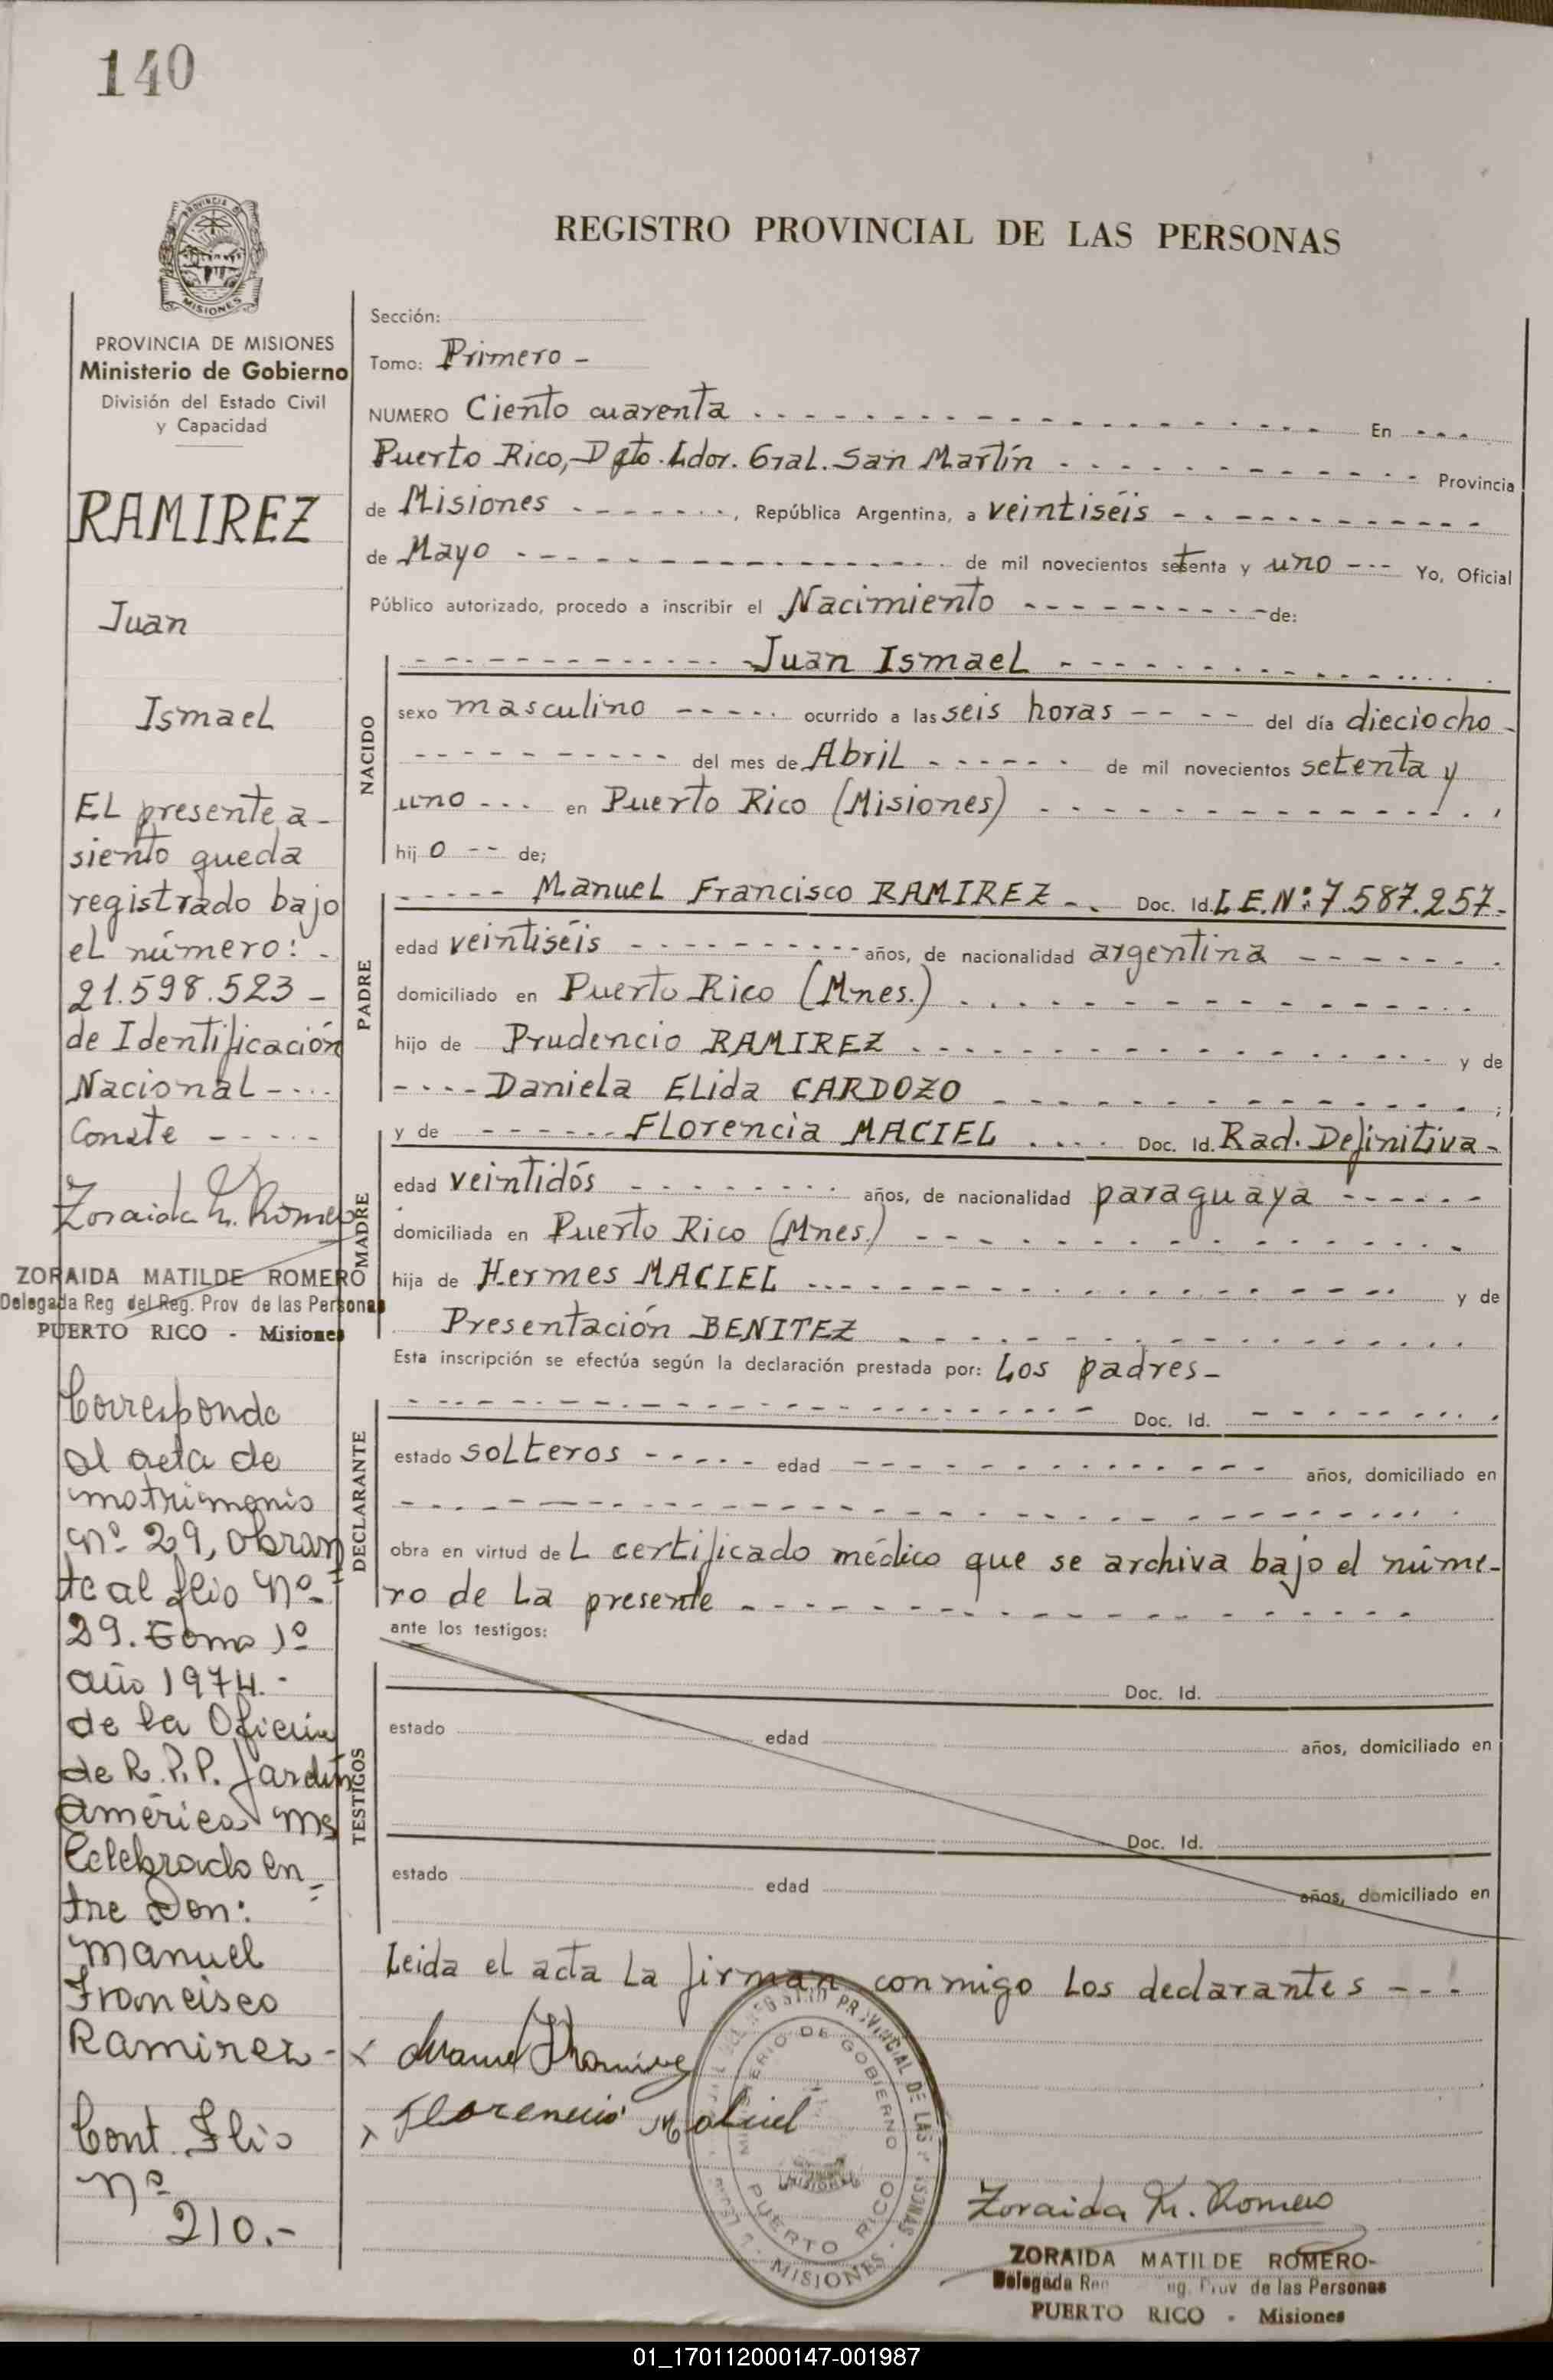 140
PROVINCIA DE
MISIONES
REGISTRO PROVINCIAL DE LAS PERSONAS
PROVINCIA DE MISIONES
Ministerio de Gobierno
División del Estado Civil
y Capacidad
RAMIREZ
Juan
Ismael
El presente a-
siento queda
registrado bajo
el número: -
21.598.523 -
de Identificación
Nacional - - - -
Conste - - - - -
Zoraida M. Romero
ZORAIDA MATILDE ROMERO
Delegada Reg del Reg. Prov de las Personas
PUERTO RICO - Misiones
Corresponde
al acta de
matrimonio
Nº 29, obran
te al flio Nº
29. Tomo 1º
año 1974.-
de la Oficina
de R.P.P. Jardín
América Ms
Celebrado en=
tre Don:
Manuel
Francisco
Ramirez -
Cont. Flio
nº
210.-
Sección:
Tomo: Primero -
NUMERO Ciento cuarenta - - - - - - En - - -
Puerto Rico, Dpto. Ldor. Gral. San Martín - - - - - - Provincia
de Misiones - - - - - -, República Argentina, a veintiséis - - - - - -
de Mayo - - - - - - de mil novecientos setenta y uno - - - Yo, Oficial
Público autorizado, procedo a inscribir el Nacimiento - - - - - - de:
NACIDO
- - - - - - Juan Ismael - - - - - -
sexo masculino - - - - - ocurrido a las seis horas - - - - del día dieciocho -
- - - - - - del mes de Abril - - - - - - de mil novecientos setenta y
uno - - - en Puerto Rico (Misiones) - - - - - - ,
hij o - - de;
PADRE
- - - - - Manuel Francisco RAMIREZ - - Doc. Id. L.E.Nº: 7.587.257-
edad veintiséis - - - - - - años, de nacionalidad argentina - - - - - -
domiciliado en Puerto Rico (Mnes.) - - - - - -
hijo de Prudencio RAMIREZ - - - - - - y de
- - - - Daniela Elida CARDOZO - - - - - - ;
MADRE
y de - - - - - - Florencia MACIEL - - - - Doc. Id. Rad. Definitiva -
edad veintidós - - - - - - años, de nacionalidad paraguaya - - - - - -
domiciliada en Puerto Rico (Mnes.) - - - - - -
hija de Hermes MACIEL - - - - - - y de
Presentación BENITEZ - - - - - -
Esta inscripción se efectúa según la declaración prestada por: Los padres -
DECLARANTE
- - - - - - Doc. Id. - - - - - -
estado solteros - - - - - edad - - - - - - años, domiciliado en
- - - - - -
obra en virtud de L certificado médico que se archiva bajo el núme-
ro de la presente - - - - - -
ante los testigos:
TESTIGOS
Doc. Id.
estado edad años, domiciliado en
Doc. Id.
estado edad años, domiciliado en
Leida el acta la firman conmigo los declarantes - - -
x Manuel F Ramirez
x Florencia Maciel
REGISTRO PROVINCIAL DE LAS PERSONAS
MINISTERIO DE GOBIERNO
MISIONES
PUERTO RICO
- MISIONES -
Zoraida M. Romero
ZORAIDA MATILDE ROMERO-
Delegada Reg Prov de las Personas
PUERTO RICO - Misiones
01_170112000147-001987